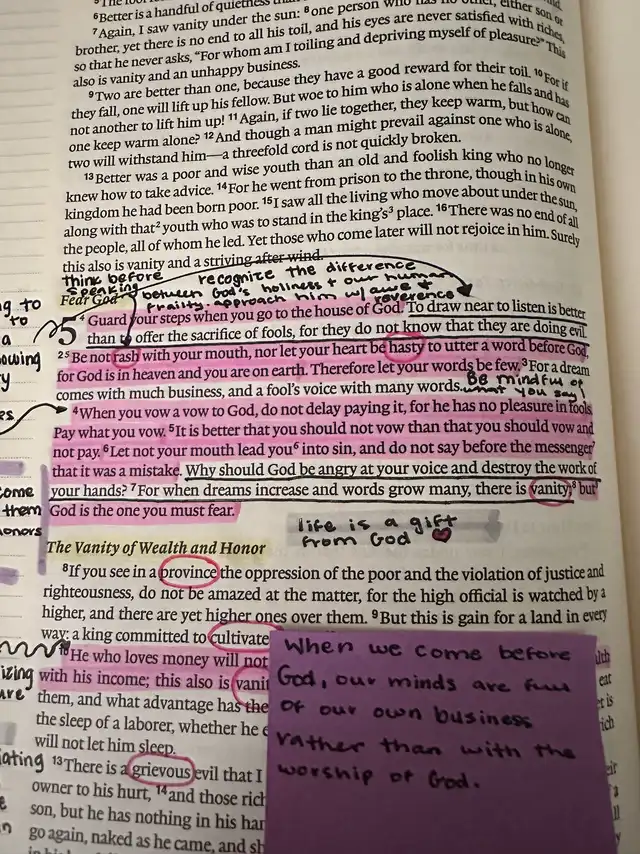 ⁵The fool
⁶Better is a handful of quietness than
⁷Again, I saw vanity under the sun: ⁸one person who has no other, either son or
brother, yet there is no end to all his toil, and his eyes are never satisfied with riches,
so that he never asks, “For whom am I toiling and depriving myself of pleasure?” This
also is vanity and an unhappy business.
⁹Two are better than one, because they have a good reward for their toil. ¹⁰For if
they fall, one will lift up his fellow. But woe to him who is alone when he falls and has
not another to lift him up! ¹¹Again, if two lie together, they keep warm, but how can
one keep warm alone? ¹²And though a man might prevail against one who is alone,
two will withstand him—a threefold cord is not quickly broken.
¹³Better was a poor and wise youth than an old and foolish king who no longer
knew how to take advice. ¹⁴For he went from prison to the throne, though in his own
kingdom he had been born poor. ¹⁵I saw all the living who move about under the sun,
along with that² youth who was to stand in the king's³ place. ¹⁶There was no end of all
the people, all of whom he led. Yet those who come later will not rejoice in him. Surely
this also is vanity and a striving after wind.
think before speaking
recognize the difference
between God's holiness + our human
frailty. approach him w/ awe +
reverence
Fear God
5 ⁴Guard your steps when you go to the house of God. To draw near to listen is better
than to offer the sacrifice of fools, for they do not know that they are doing evil.
²⁵Be not rash with your mouth, nor let your heart be hasty to utter a word before God,
for God is in heaven and you are on earth. Therefore let your words be few. ³For a dream
comes with much business, and a fool's voice with many words.
Be mindful of
what you say!
⁴When you vow a vow to God, do not delay paying it, for he has no pleasure in fools.
Pay what you vow. ⁵It is better that you should not vow than that you should vow and
not pay. ⁶Let not your mouth lead you⁶ into sin, and do not say before the messenger⁷
that it was a mistake. Why should God be angry at your voice and destroy the work of
your hands? ⁷For when dreams increase and words grow many, there is vanity;⁸ but
God is the one you must fear.
life is a gift
from God
The Vanity of Wealth and Honor
⁸If you see in a province the oppression of the poor and the violation of justice and
righteousness, do not be amazed at the matter, for the high official is watched by a
higher, and there are yet higher ones over them. ⁹But this is gain for a land in every
way: a king committed to cultivate
¹⁰He who loves money will not
with his income; this also is vanit
them, and what advantage has the
the sleep of a laborer, whether he e
will not let him sleep.
¹³There is a grievous evil that I
owner to his hurt, ¹⁴and those rich
son, but he has nothing in his han
go again, naked as he came, and sh
When we come before
God, our minds are full
of our own business
rather than with the
worship of God.
ng to
to
a
owing
y
es
come
them
honors
izing
are
iating
e
n
lth
eat
t is
rich